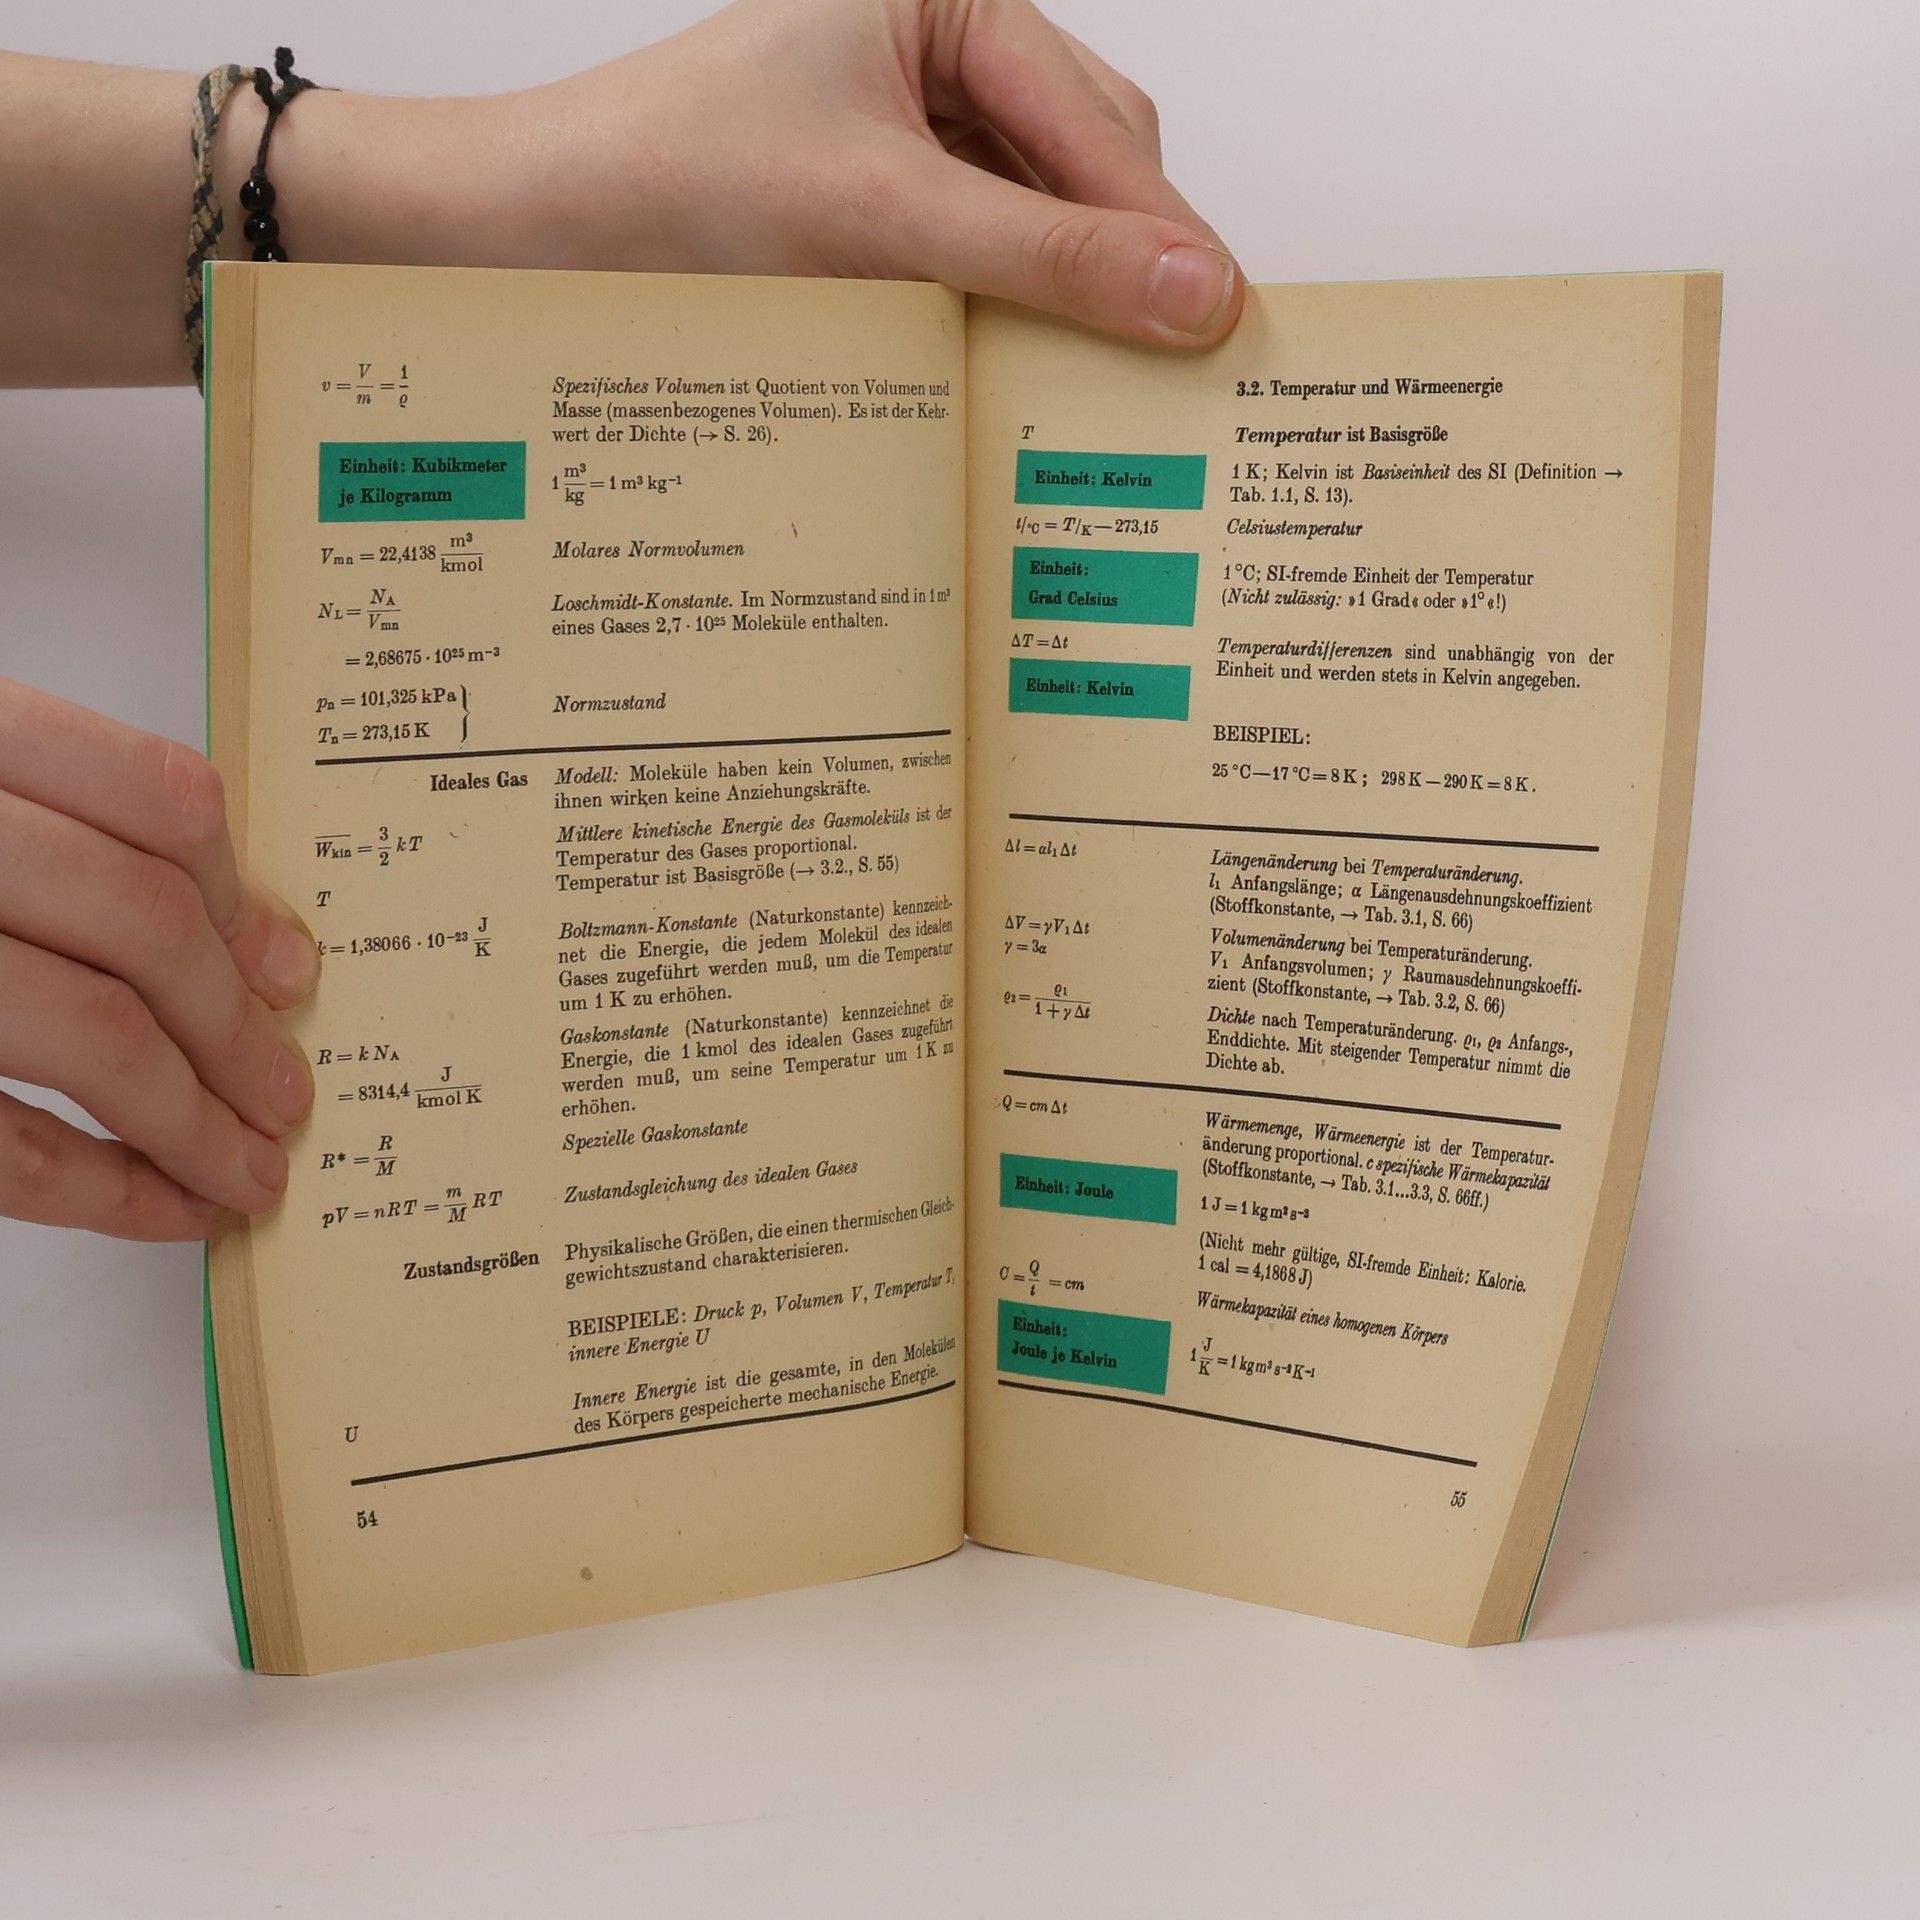 v = V/m = 1/ϱ
Spezifisches Volumen ist Quotient von Volumen und
Masse (massenbezogenes Volumen). Es ist der Kehr-
wert der Dichte (→ S. 26).
Einheit: Kubikmeter
je Kilogramm
1 m³/kg = 1 m³ kg⁻¹
Vmn = 22,4138 m³/kmol
Molares Normvolumen
NL = NA/Vmn
Loschmidt-Konstante. Im Normzustand sind in 1 m³
eines Gases 2,7 · 10²⁵ Moleküle enthalten.
= 2,68675 · 10²⁵ m⁻³
pn = 101,325 kPa }
Tn = 273,15 K
Normzustand
Ideales Gas
Modell: Moleküle haben kein Volumen, zwischen
ihnen wirken keine Anziehungskräfte.
W̅kin = 3/2 kT
Mittlere kinetische Energie des Gasmoleküls ist der
Temperatur des Gases proportional.
T
Temperatur ist Basisgröße (→ 3.2., S. 55)
k = 1,38066 · 10⁻²³ J/K
Boltzmann-Konstante (Naturkonstante) kennzeich-
net die Energie, die jedem Molekül des idealen
Gases zugeführt werden muß, um die Temperatur
um 1 K zu erhöhen.
R = k NA
= 8314,4 J/kmol K
Gaskonstante (Naturkonstante) kennzeichnet die
Energie, die 1 kmol des idealen Gases zugeführt
werden muß, um seine Temperatur um 1 K zu
erhöhen.
R* = R/M
Spezielle Gaskonstante
pV = nRT = m/M RT
Zustandsgleichung des idealen Gases
Zustandsgrößen
Physikalische Größen, die einen thermischen Gleich-
gewichtszustand charakterisieren.
BEISPIELE: Druck p, Volumen V, Temperatur T,
innere Energie U
U
Innere Energie ist die gesamte, in den Molekülen
des Körpers gespeicherte mechanische Energie.
54
3.2. Temperatur und Wärmeenergie
T
Temperatur ist Basisgröße
Einheit: Kelvin
1 K; Kelvin ist Basiseinheit des SI (Definition →
Tab. 1.1, S. 13).
t/°C = T/K — 273,15
Celsiustemperatur
Einheit:
Grad Celsius
1 °C; SI-fremde Einheit der Temperatur
(Nicht zulässig: »1 Grad« oder »1°«!)
ΔT = Δt
Einheit: Kelvin
Temperaturdifferenzen sind unabhängig von der
Einheit und werden stets in Kelvin angegeben.
BEISPIEL:
25 °C — 17 °C = 8 K; 298 K — 290 K = 8 K.
Δl = αl₁ Δt
Längenänderung bei Temperaturänderung.
l₁ Anfangslänge; α Längenausdehnungskoeffizient
(Stoffkonstante, → Tab. 3.1, S. 66)
ΔV = γV₁ Δt
γ = 3α
Volumenänderung bei Temperaturänderung.
V₁ Anfangsvolumen; γ Raumausdehnungskoeffi-
zient (Stoffkonstante, → Tab. 3.2, S. 66)
ϱ₂ = ϱ₁/(1 + γ Δt)
Dichte nach Temperaturänderung. ϱ₁, ϱ₂ Anfangs-,
Enddichte. Mit steigender Temperatur nimmt die
Dichte ab.
Q = cm Δt
Wärmemenge, Wärmeenergie ist der Temperatur-
änderung proportional. c spezifische Wärmekapazität
(Stoffkonstante, → Tab. 3.1...3.3, S. 66ff.)
Einheit: Joule
1 J = 1 kg m² s⁻²
(Nicht mehr gültige, SI-fremde Einheit: Kalorie.
1 cal = 4,1868 J)
C = Q/t = cm
Wärmekapazität eines homogenen Körpers
Einheit:
Joule je Kelvin
1 J/K = 1 kg m² s⁻² K⁻¹
55